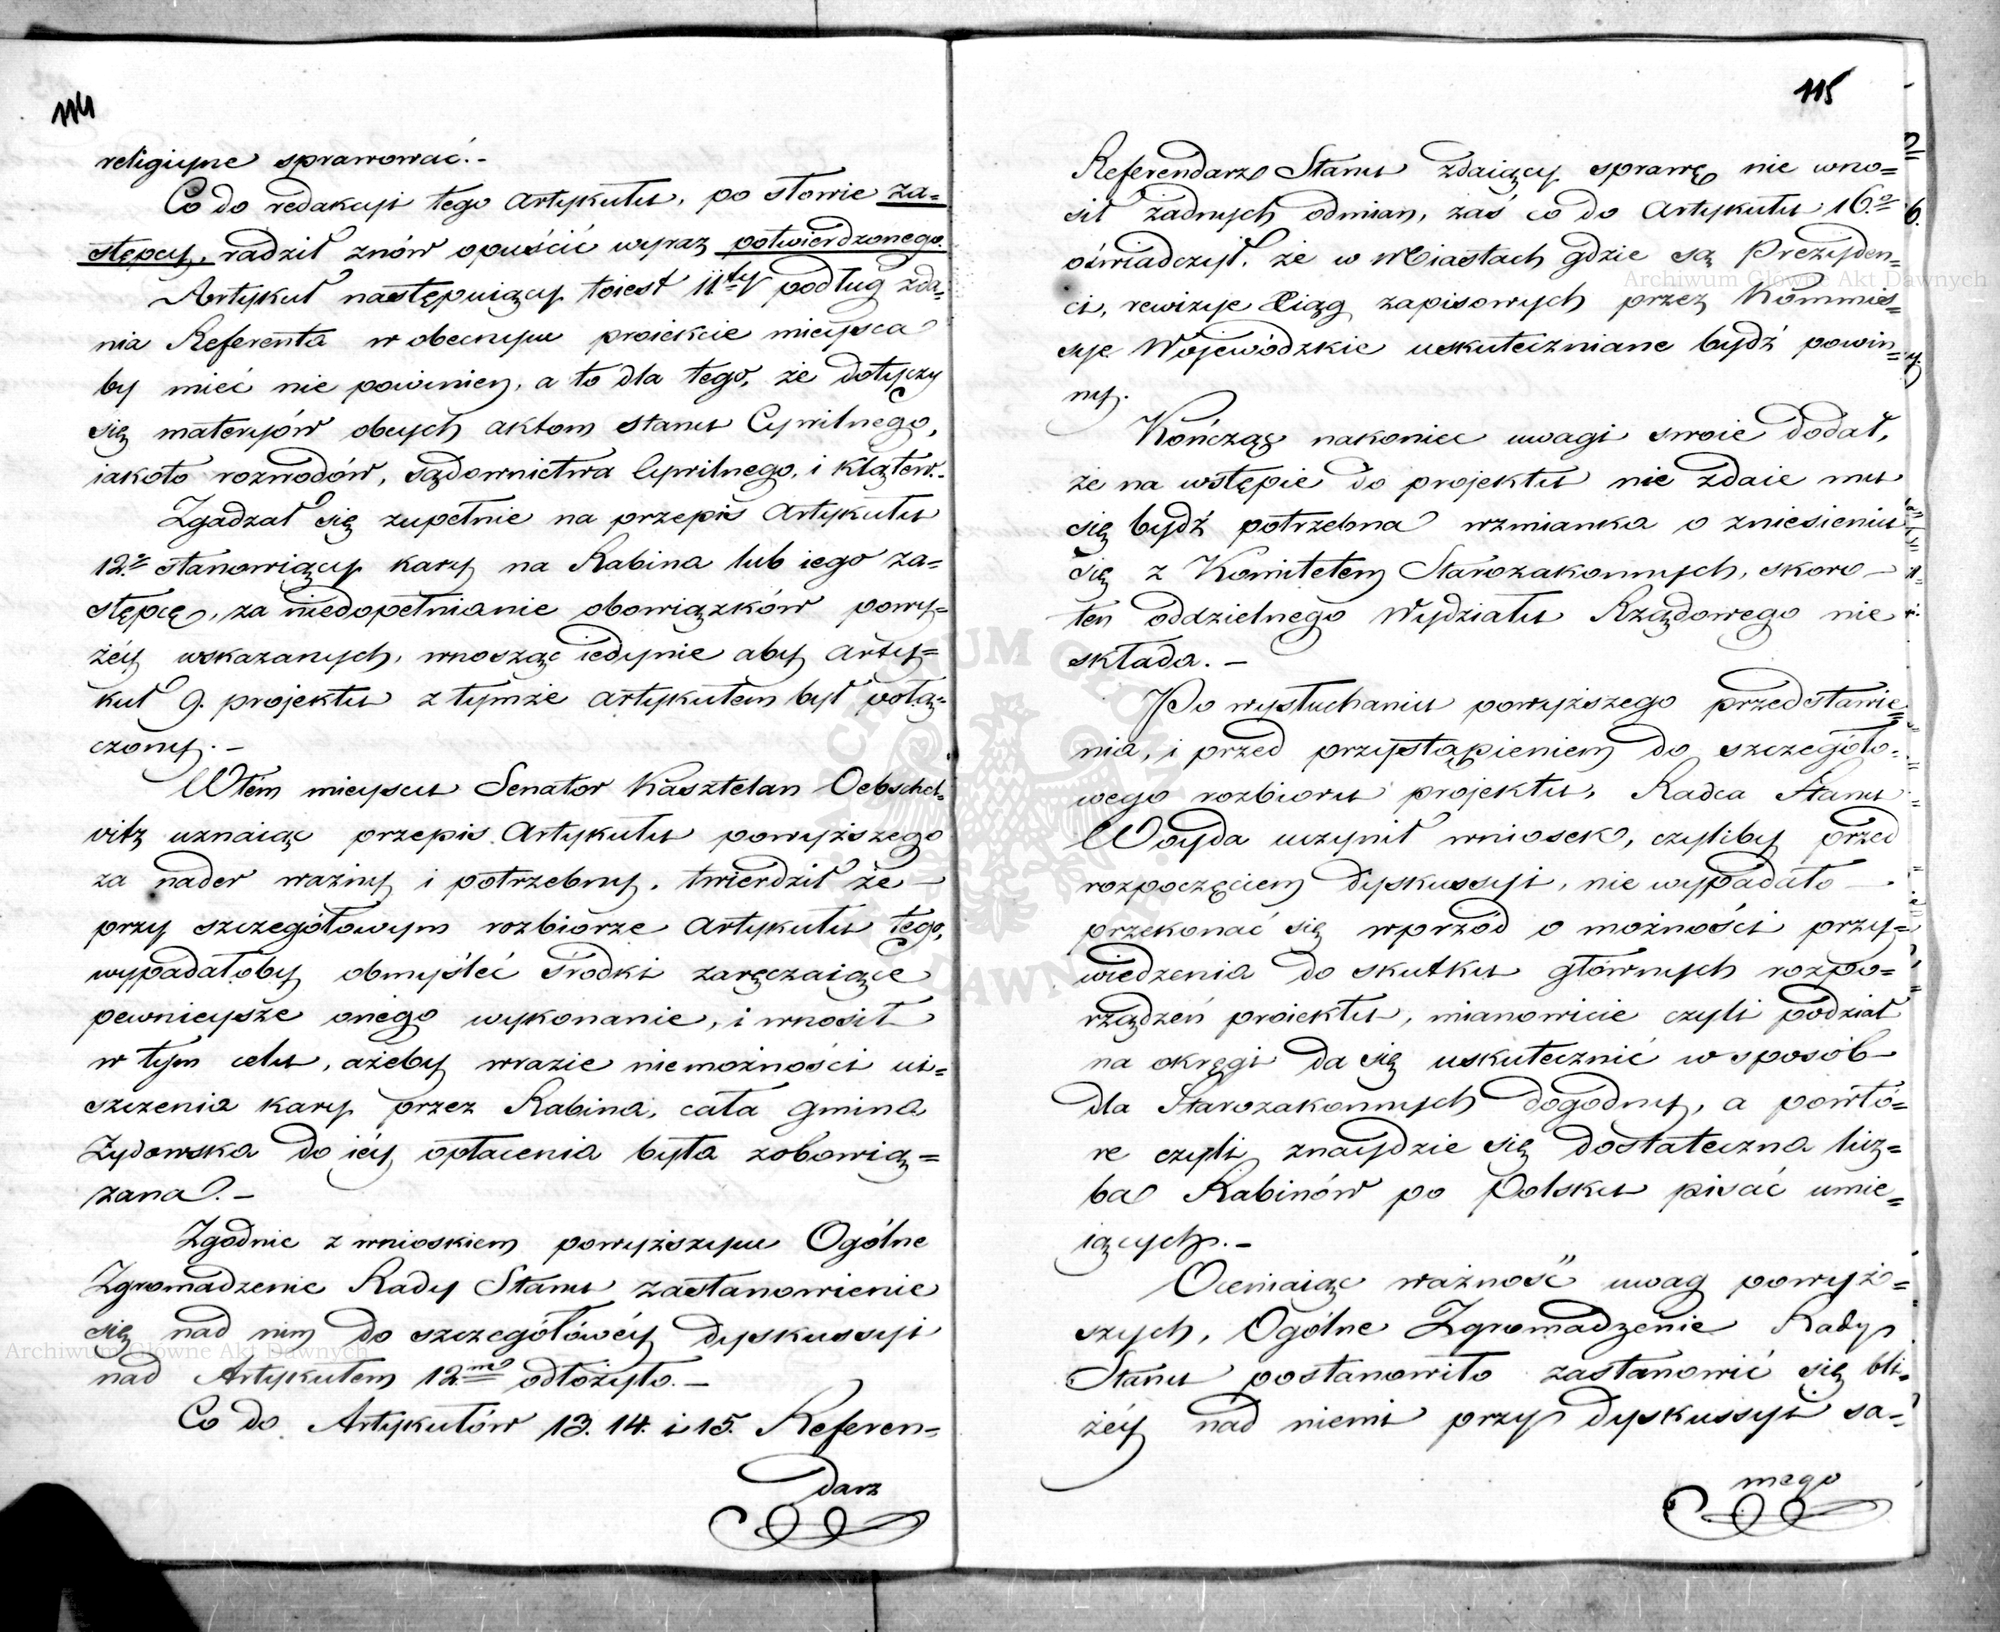 114
religijne sprawować.-
Co do redakcyi tego Artykułu, po słowie za=
stępcy, radził znów opuścić wyraz potwierdzonego.
Artykuł następuiący toiest 11.ty podług zda=
nia Referenta w obecnym proiekcie mieysca
by mieć nie powinien, a to dla tego, że dotyczy
się materyów obcych aktom stanu Cywilnego,
iakoto rozwodów, sądownictwa Cywilnego, i klątew.-
Zgadzał się zupełnie na przepis Artykułu
12.o stanowiący kary na Rabina lub iego za=
stępcę, za niedopełnianie obowiązków powy=
żéy wskazanych, wnosząc iedynie aby Arty=
kuł 9. projektu z tymże Artykułem był połą=
czony.-
W tém mieyscu Senator Kasztelan Oebschel=
witz uznaiąc przepis Artykułu powyższego
za nader ważny i potrzebny, twierdził że —
przy szczegółowym rozbiorze Artykułu tego,
wypadałoby obmyśleć środki zaręczaiące
pewnieysze onego wykonanie, i wnosił
w tym celu, ażeby wrazie niemożności ui=
szczenia kary przez Rabina, cała gmina
Żydowska do iéy opłacenia była zobowią=
zana.-
Zgodnie z wnioskiem powyższym Ogólne
Zgromadzenie Rady Stanu zastanowienie
się nad nim do szczegółowéy dyskussyi
nad Artykułem 12.mo odłożyło.-
Co do Artykułów 13. 14. i 15. Referen=
darz
115
Referendarz Stanu zdaiący sprawę nie wno=
sił żadnych odmian, zaś co do Artykułu 16.o
oświadczył, że w Miastach gdzie są Prezyden=
ci, rewizye Xiąg zapisowych przez Kommis=
sye Wojewódzkie uskuteczniane bydź powin=
ny.
Kończąc nakoniec uwagi swoie dodał,
że na wstępie do projektu nie zdaie mu
się bydź potrzebna wzmianka o zniesieniu
się z Komitetem Starozakonnych, skoro —
ten oddzielnego Wydziału Rządowego nie
składa.-
Po wysłuchaniu powyższego przedstawie=
nia, i przed przystąpieniem do szczegóło=
wego rozbioru projektu, Radca Stanu
Woyda uczynił wniosek, czyliby przed
rozpoczęciem dyskussyi, nie wypadało —
przekonać się wprzód o możności przy=
wiedzenia do skutku głównych rozpo=
rządzeń proiektu, mianowicie czyli podział
na okręgi da się uskutecznić w sposób
dla Starozakonnych dogodny, a powtó=
re czyli znaydzie się dostateczna licz=
ba Rabinów po Polsku pisać umie=
iących.-
Oceniaiąc ważność uwag powyż=
szych, Ogólne Zgromadzenie Rady
Stanu postanowiło zastanowić się bli=
żéy nad niemi przy dyskussyi sa=
mego
Archiwum Główne Akt Dawnych
Archiwum Główne Akt Dawnych
ARCHIWUM GŁÓWNE AKT DAWNYCH